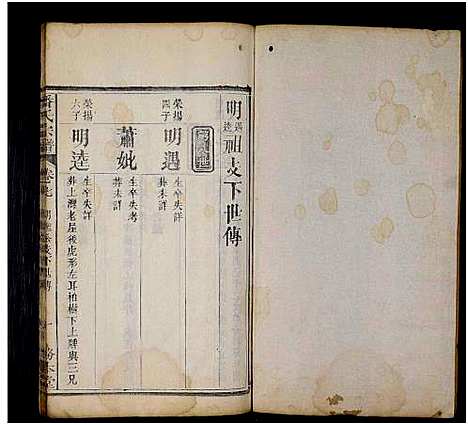 明遇
逵
祖支下世傳
榮揚
四子
明遇
生卒失詳
葬未詳
蕭妣
生卒失考
葬未詳
榮揚
六子
明逵
生卒失詳
葬上灣老屋後虎形左耳柏樹下上磹與三兄
氏宗譜
卷